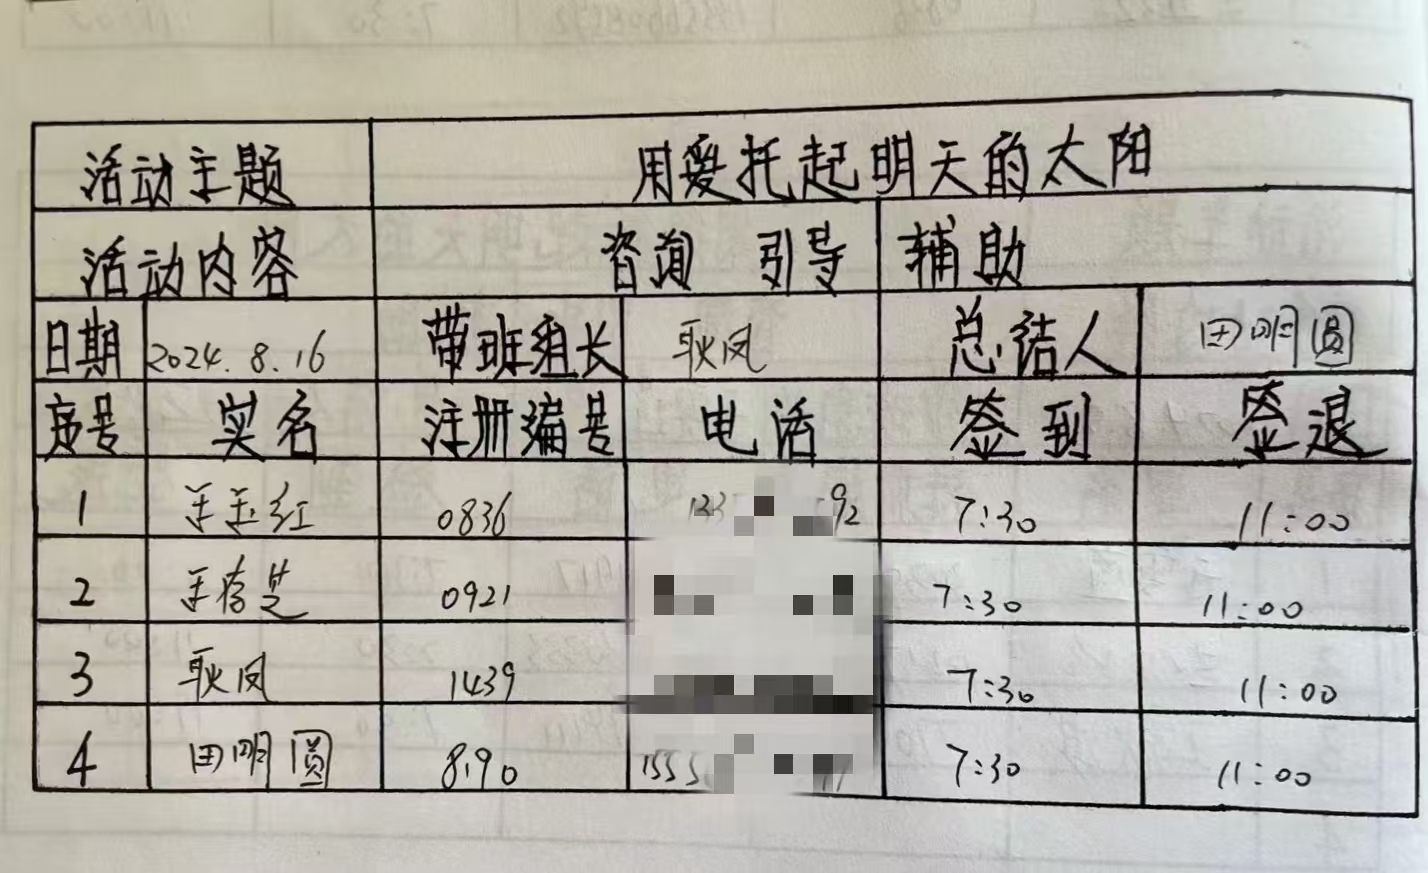 活动主题 用爱托起明天的太阳
活动内容 咨询 引导 辅助
日期 2024.8.16 带班组长 耿凤 总结人 田明圆
序号 实名 注册编号 电话 签到 签退
1 王玉红 0836 92 7:30 11:00
2 王存芝 0921 7:30 11:00
3 耿凤 1439 7:30 11:00
4 田明圆 8190 1555 7:30 11:00